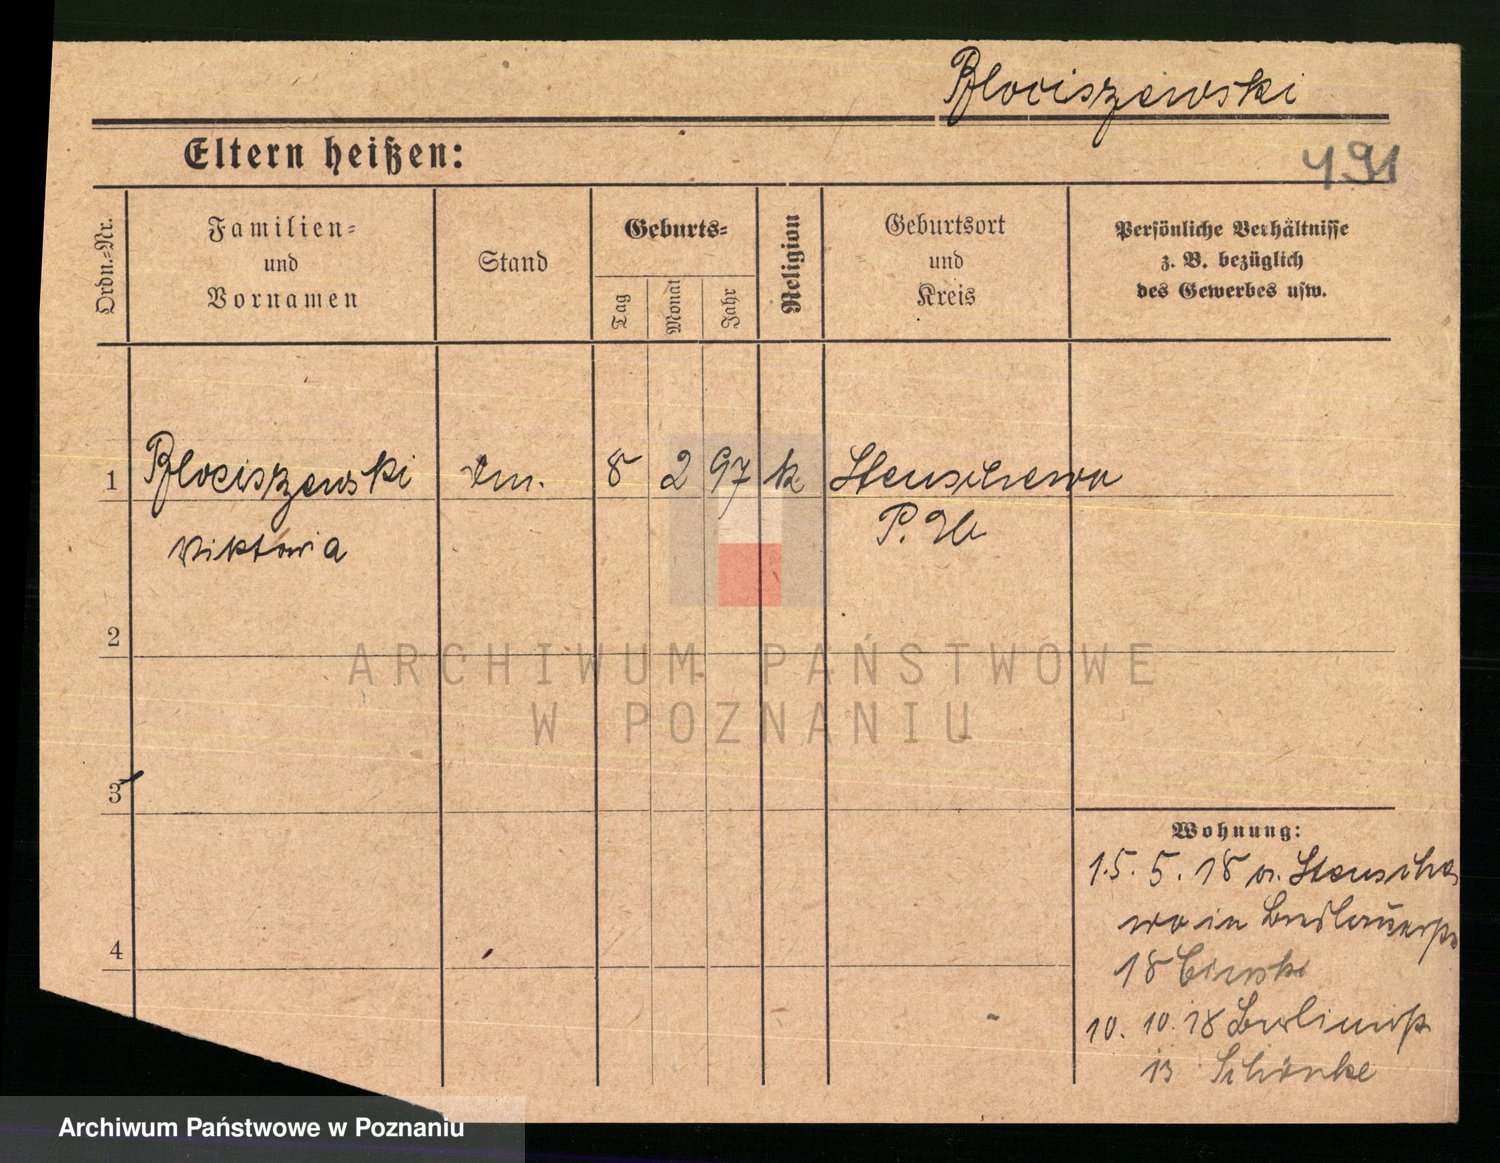 Blociszewski
491
Eltern heißen:
Ordn.-Nr.
Familien-
und
Vornamen
Stand
Geburts-
Tag
Monat
Jahr
Religion
Geburtsort
und
Kreis
Persönliche Verhältnisse
z. B. bezüglich
des Gewerbes usw.
1 Blociszewski 8 2 97 k Stenschewo
Viktoria P. W.
2
3
4
Wohnung:
15. 5. 18 v. Stensche
wo in Breslauerstr
18
10. 10. 18 Berlinerstr
13 Schönke
ARCHIWUM PAŃSTWOWE
W POZNANIU
Archiwum Państwowe w Poznaniu